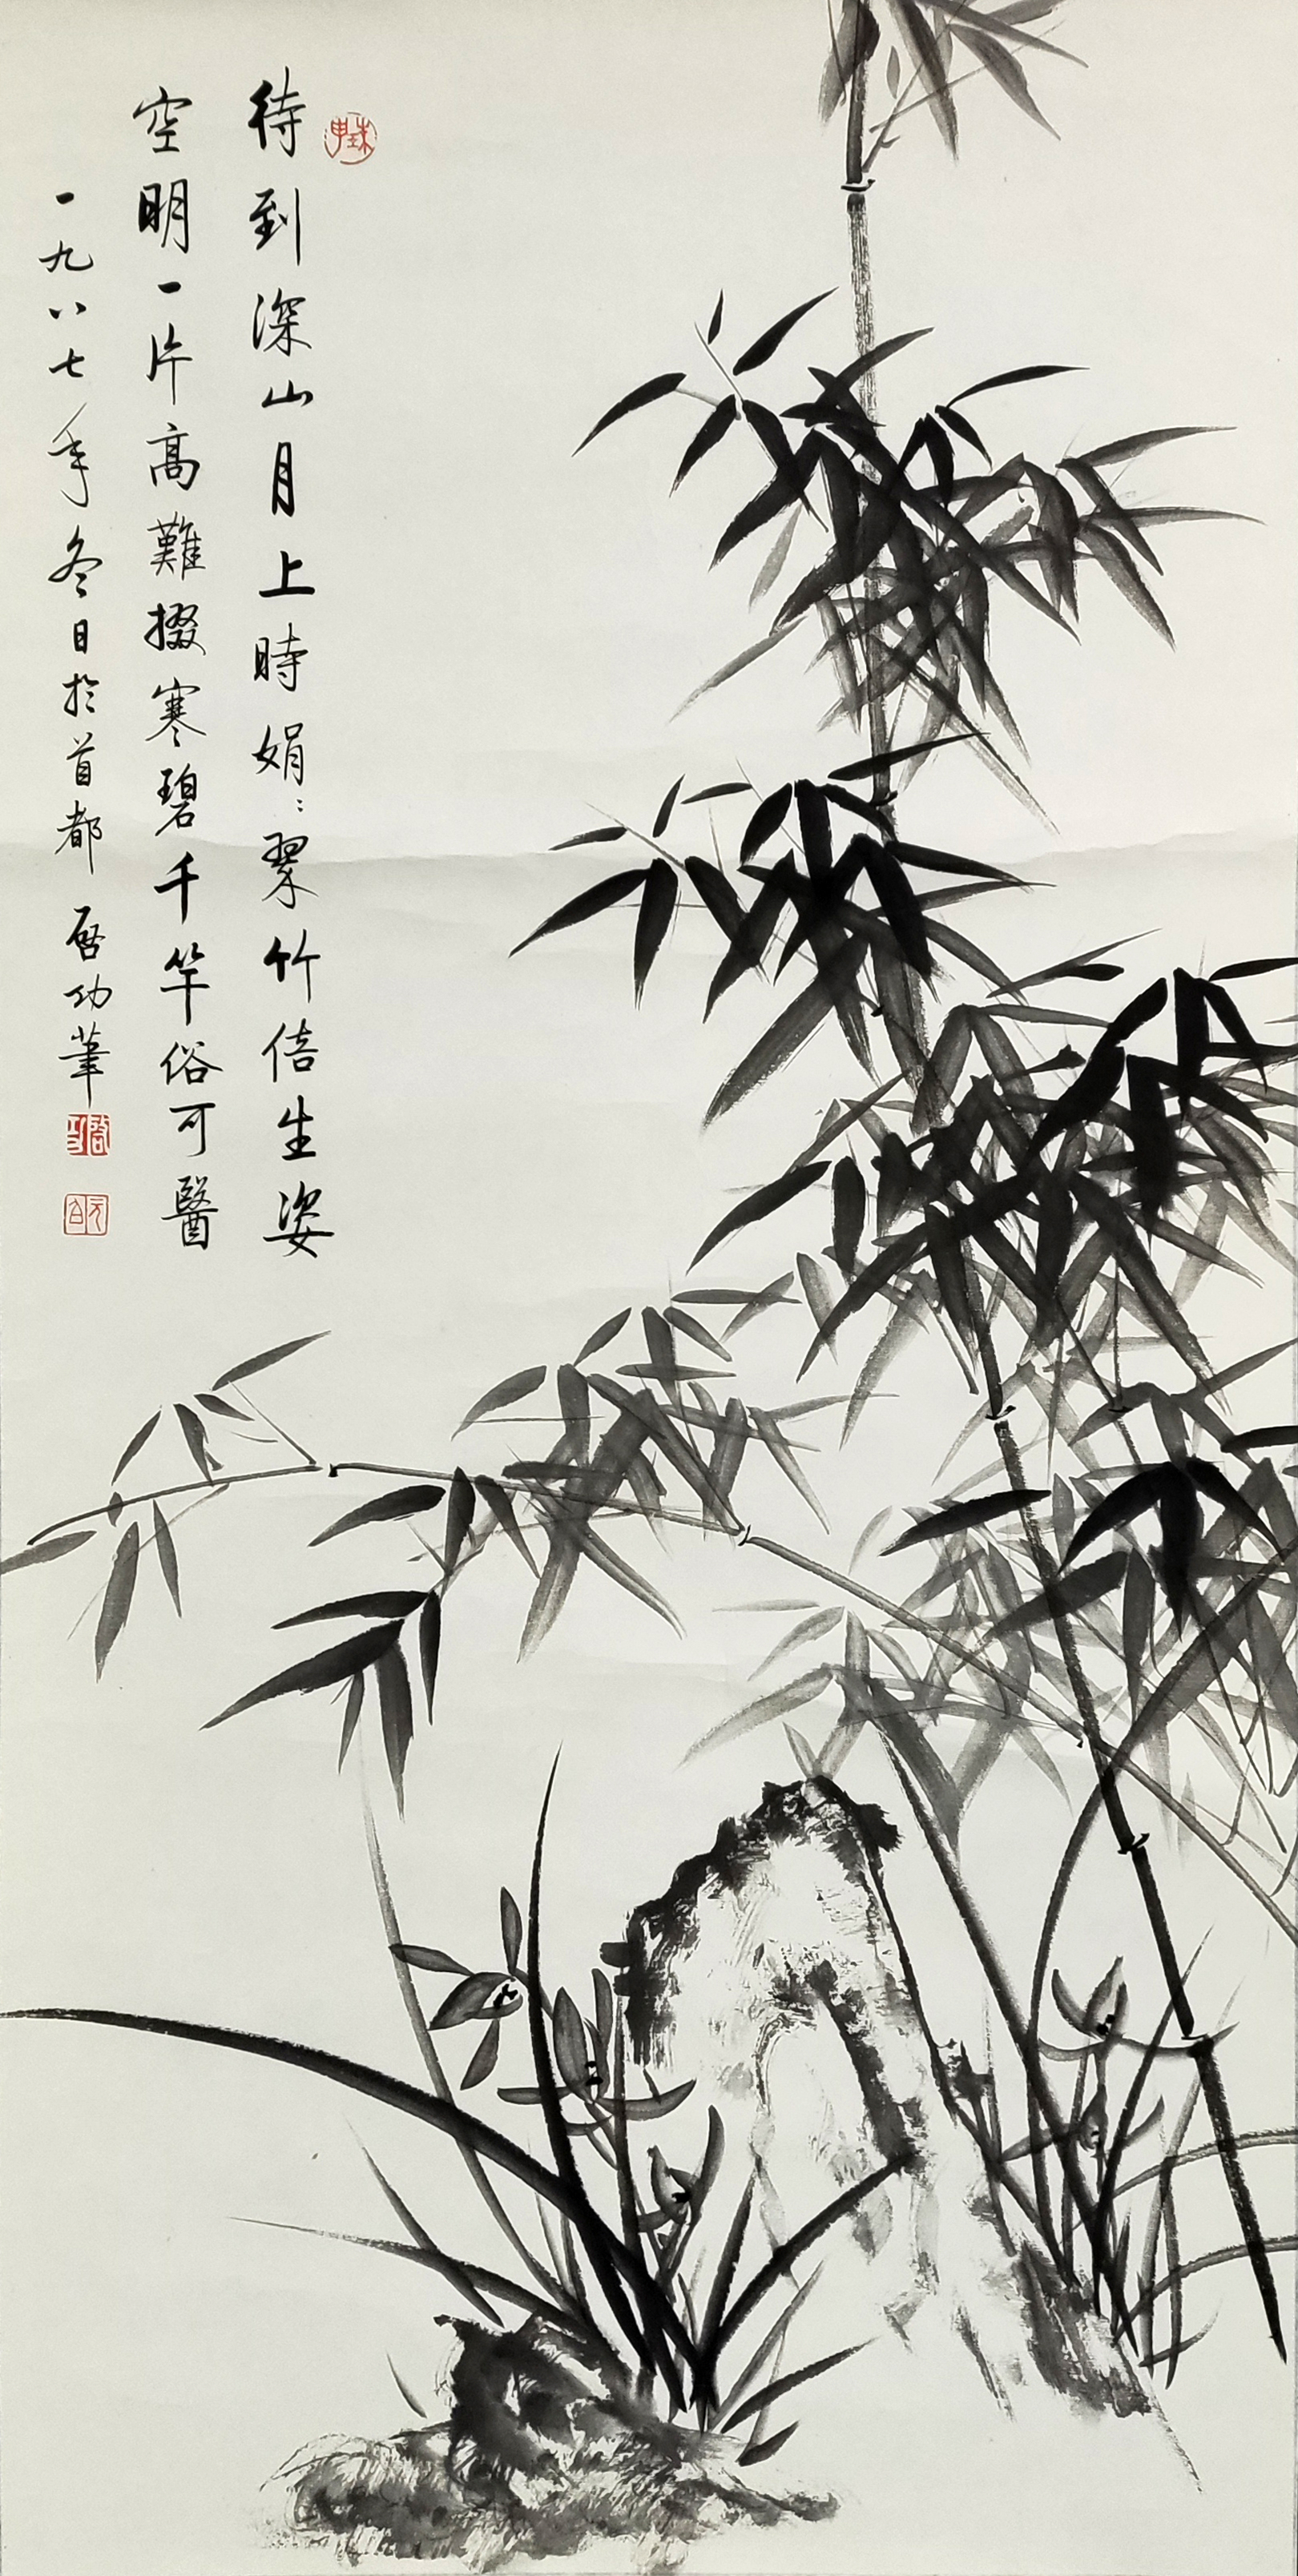 待到深山月上時娟〻翠竹倍生姿
空明一片高難掇寒碧千竿俗可醫
一九八七年冬日於首都 啓功筆
啓功
元白